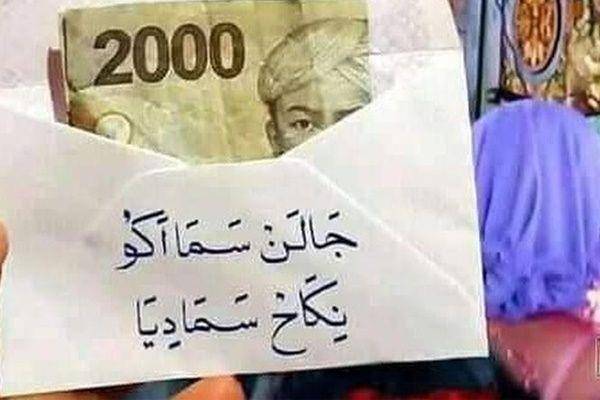 2000
جَالَنْ سَمَا اَكُوْ
نِكَاحْ سَمَا دِيَا